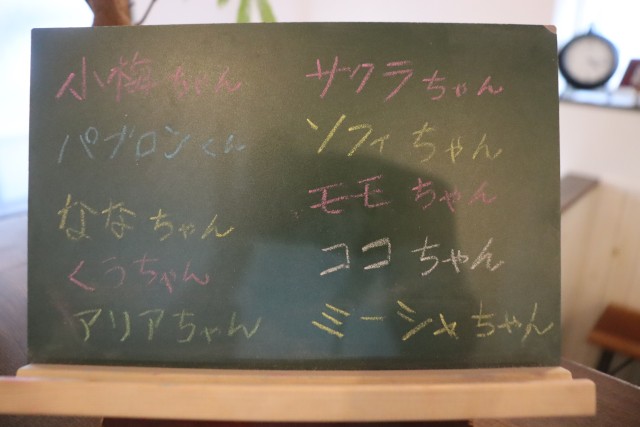 小梅ちゃん
パブロンくん
ななちゃん
くうちゃん
アリアちゃん
サクラちゃん
ソフィちゃん
モモちゃん
ココちゃん
ミーシャちゃん